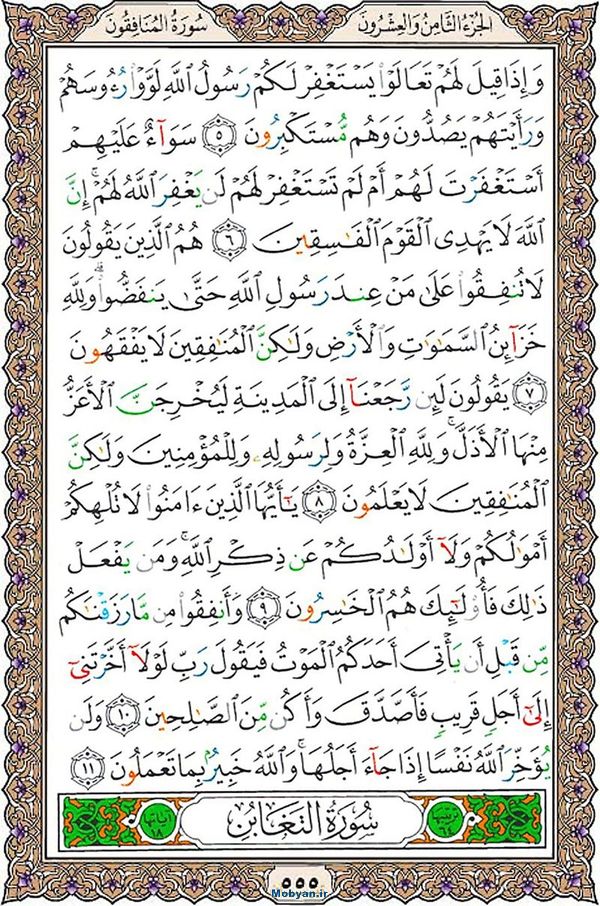 الجزء الثامن والعشرون سورة المنافقون
وَإِذَا قِيلَ لَهُمْ تَعَالَوْا۟ يَسْتَغْفِرْ لَكُمْ رَسُولُ ٱللَّهِ لَوَّوْا۟ رُءُوسَهُمْ
وَرَأَيْتَهُمْ يَصُدُّونَ وَهُم مُّسْتَكْبِرُونَ ٥ سَوَآءٌ عَلَيْهِمْ
أَسْتَغْفَرْتَ لَهُمْ أَمْ لَمْ تَسْتَغْفِرْ لَهُمْ لَن يَغْفِرَ ٱللَّهُ لَهُمْ ۚ إِنَّ
ٱللَّهَ لَا يَهْدِى ٱلْقَوْمَ ٱلْفَـٰسِقِينَ ٦ هُمُ ٱلَّذِينَ يَقُولُونَ
لَا تُنفِقُوا۟ عَلَىٰ مَنْ عِندَ رَسُولِ ٱللَّهِ حَتَّىٰ يَنفَضُّوا۟ ۗ وَلِلَّهِ
خَزَآئِنُ ٱلسَّمَـٰوَٰتِ وَٱلْأَرْضِ وَلَـٰكِنَّ ٱلْمُنَـٰفِقِينَ لَا يَفْقَهُونَ
٧ يَقُولُونَ لَئِن رَّجَعْنَآ إِلَى ٱلْمَدِينَةِ لَيُخْرِجَنَّ ٱلْأَعَزُّ
مِنْهَا ٱلْأَذَلَّ ۚ وَلِلَّهِ ٱلْعِزَّةُ وَلِرَسُولِهِۦ وَلِلْمُؤْمِنِينَ وَلَـٰكِنَّ
ٱلْمُنَـٰفِقِينَ لَا يَعْلَمُونَ ٨ يَـٰٓأَيُّهَا ٱلَّذِينَ ءَامَنُوا۟ لَا تُلْهِكُمْ
أَمْوَٰلُكُمْ وَلَآ أَوْلَـٰدُكُمْ عَن ذِكْرِ ٱللَّهِ ۚ وَمَن يَفْعَلْ
ذَٰلِكَ فَأُو۟لَـٰٓئِكَ هُمُ ٱلْخَـٰسِرُونَ ٩ وَأَنفِقُوا۟ مِن مَّا رَزَقْنَـٰكُم
مِّن قَبْلِ أَن يَأْتِىَ أَحَدَكُمُ ٱلْمَوْتُ فَيَقُولَ رَبِّ لَوْلَآ أَخَّرْتَنِىٓ
إِلَىٰٓ أَجَلٍ قَرِيبٍ فَأَصَّدَّقَ وَأَكُن مِّنَ ٱلصَّـٰلِحِينَ ١٠ وَلَن
يُؤَخِّرَ ٱللَّهُ نَفْسًا إِذَا جَآءَ أَجَلُهَا ۚ وَٱللَّهُ خَبِيرٌۢ بِمَا تَعْمَلُونَ ١١
ترتيبها ٦٤ سُورَةُ التَّغَابُنِ آياتها ١٨
٥٥٥
Mobyan.ir